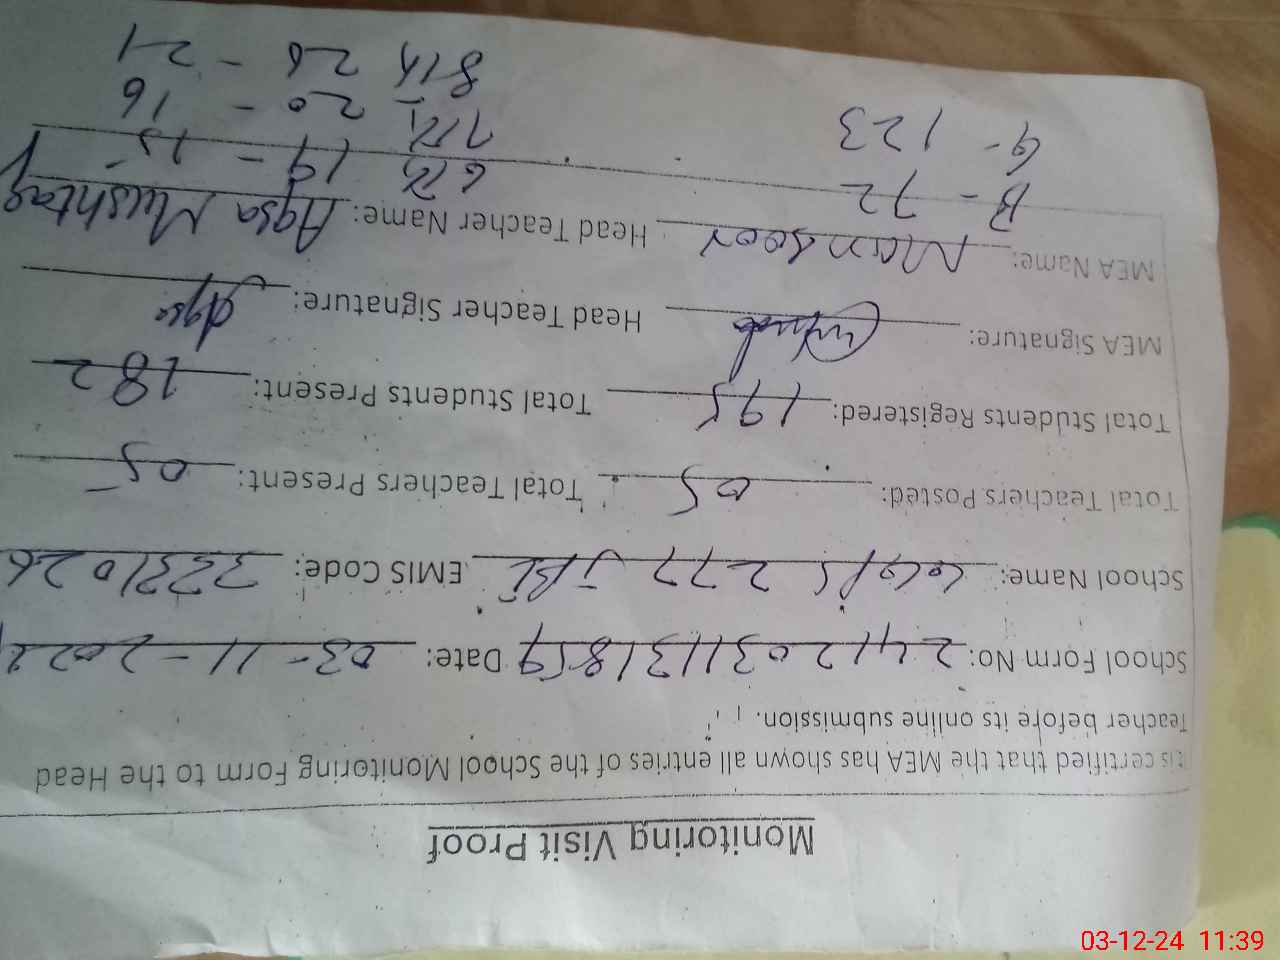 Monitoring Visit Proof
It is certified that the MEA has shown all entries of the School Monitoring Form to the Head
Teacher before its online submission.
School Form No: 24120311318519 Date: 03-11-2024
School Name: GGPS 277 JB EMIS Code: 33321026
Total Teachers Posted: 05 Total Teachers Present: 05
Total Students Registered: 195 Total Students Present: 182
MEA Signature: Head Teacher Signature: Aqsa
MEA Name: Mansoor Head Teacher Name: Aqsa Mushtaq
B - 72 6th 19 - 15
G - 123 7th 20 - 16
8th 26 - 21
03-12-24 11:39